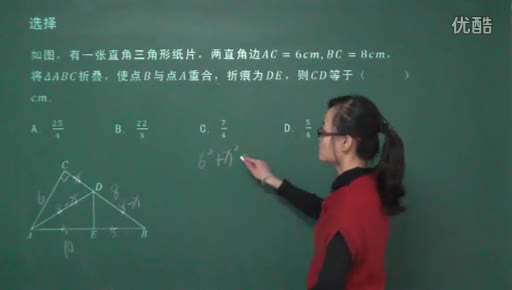 选择
优酷
如图，有一张直角三角形纸片，两直角边AC = 6cm, BC = 8cm，
将ΔABC折叠，使点B与点A重合，折痕为DE，则CD等于（ ）
cm.
A. 25/4 B. 22/3 C. 7/4 D. 5/4
6²+x²
C
6 x D 8
8-x 8-x
A 5 E 5 B
10